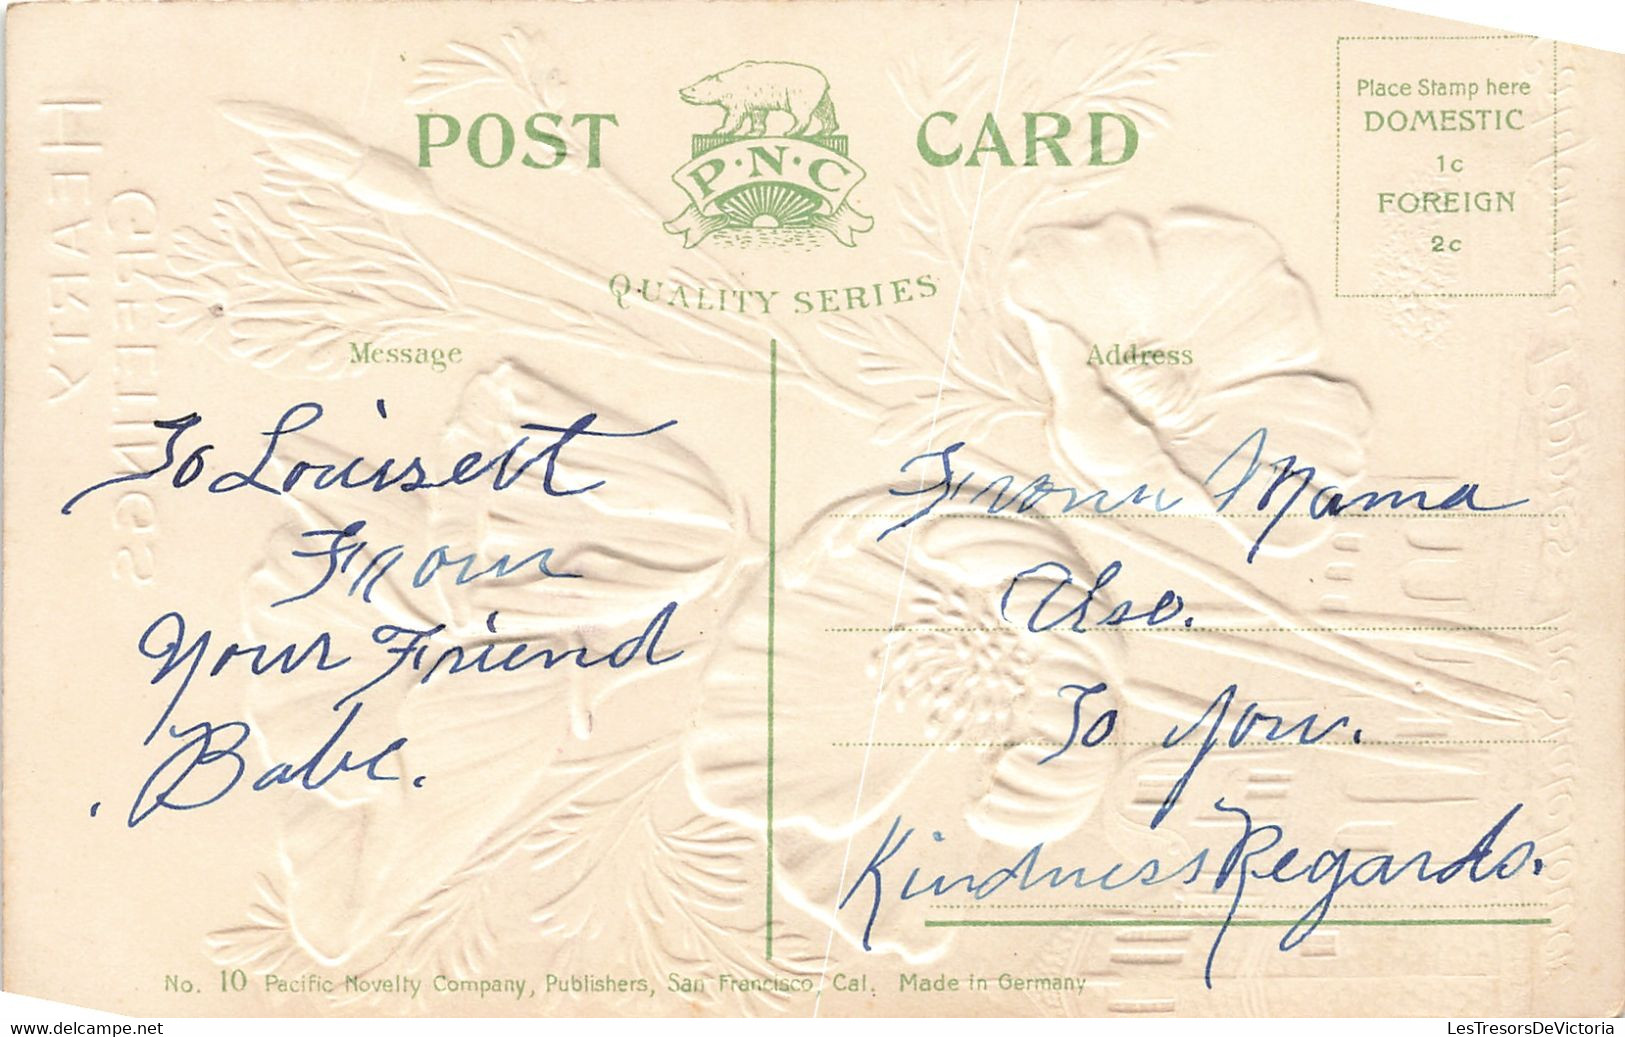 POST CARD
P·N·C
QUALITY SERIES
Place Stamp here
DOMESTIC
1c
FOREIGN
2c
HEARTY
GREETINGS
Message
To Louisett
From
Your Friend
Babe.
Address
From Mama
Also.
To you.
Kindness Regards.
No. 10 Pacific Novelty Company, Publishers, San Francisco, Cal. Made in Germany
www.delcampe.net
LesTresorsDeVictoria